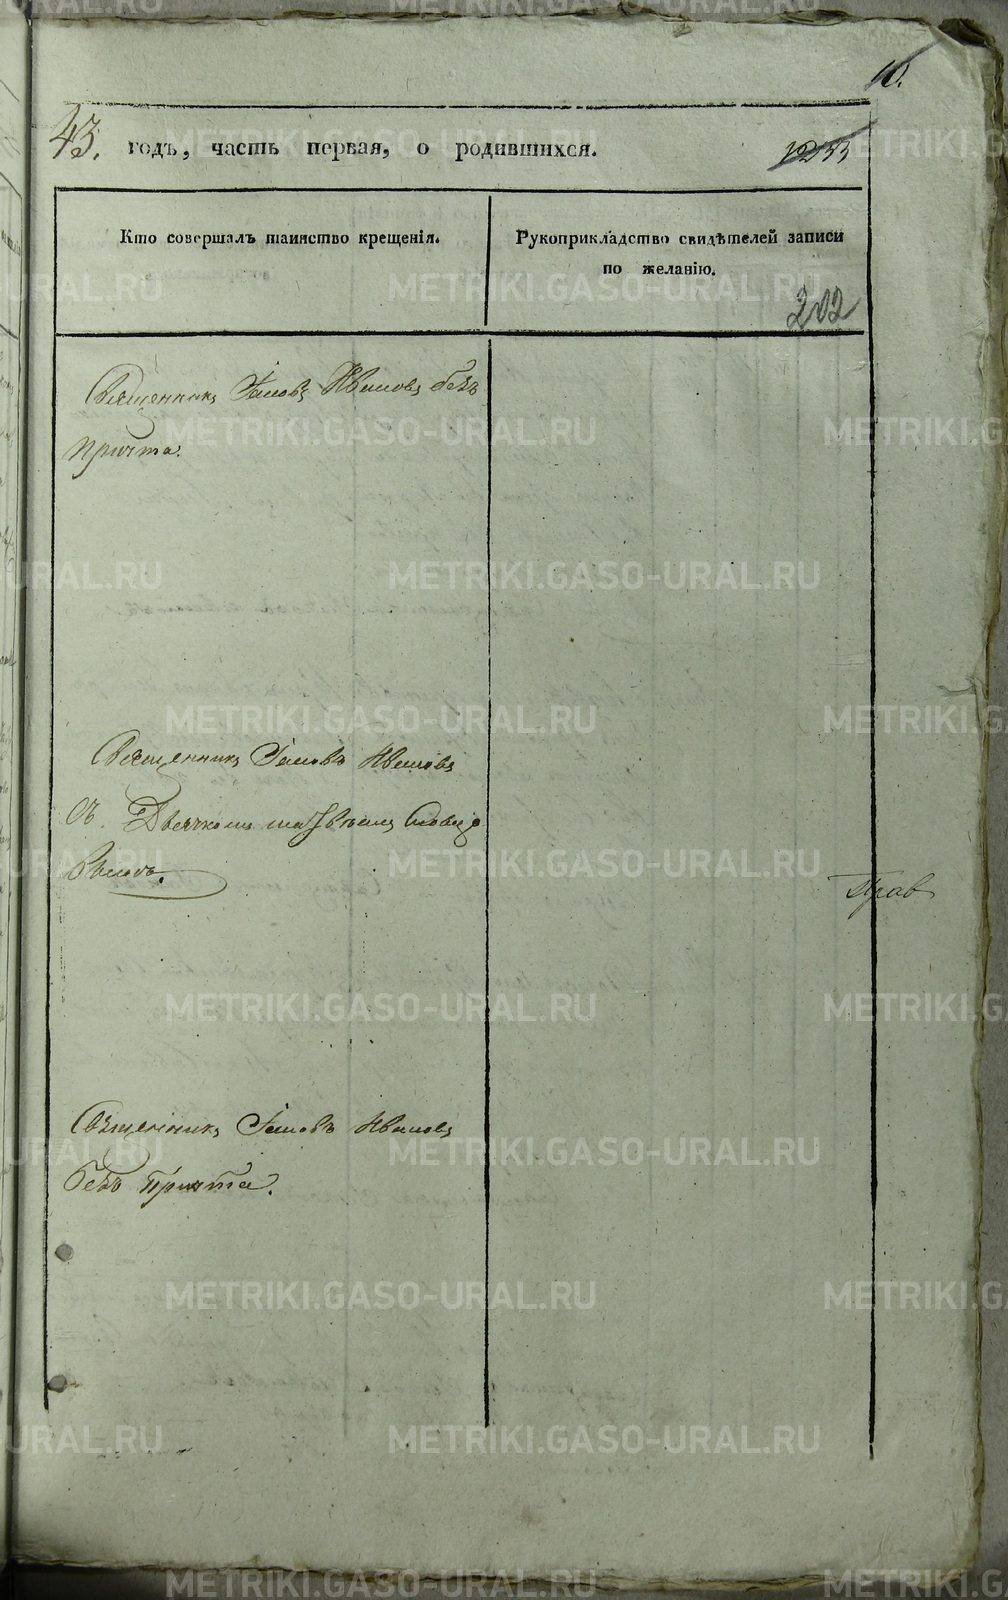 10.
43. годъ, часть первая, о родившихся.
1233
Кто совершалъ таинство крещенія.
Рукоприкладство свидѣтелей записи
по желанію.
202
Священникъ Іаковъ Ивановъ безъ
причта.
Священникъ Іаковъ Ивановъ
съ Дьячкомъ
Священникъ Іаковъ Ивановъ
безъ причта.
Прав
METRIKI.GASO-URAL.RU